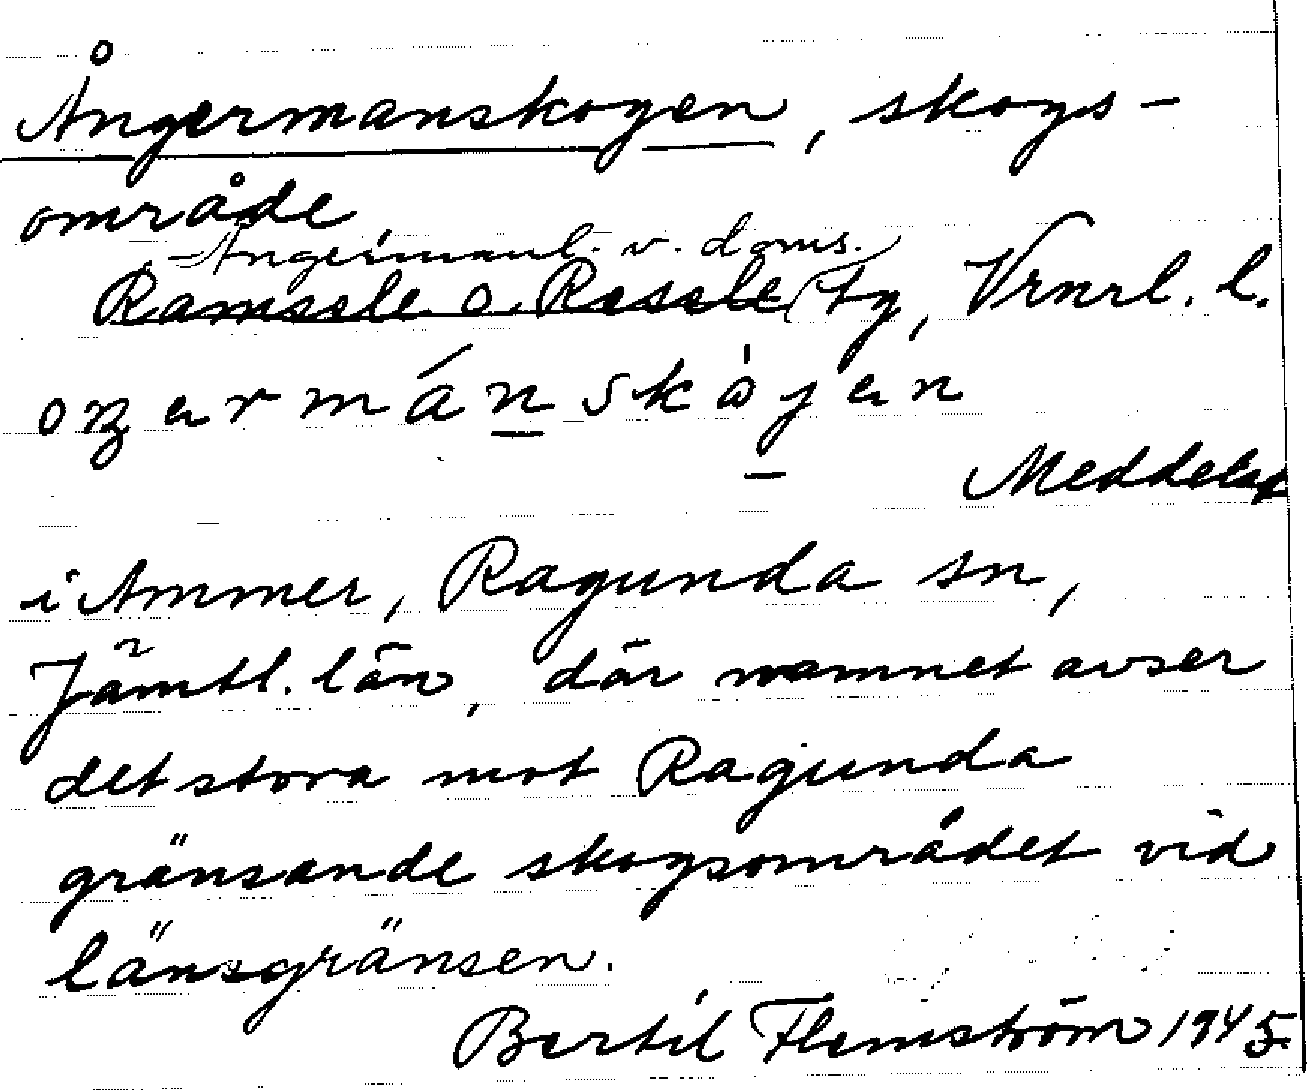 Ångermanskogen, skogs-
område
Ångermanl. v. doms.
Ramsele o. Resele ty, Vrnrl. l.
oŋ ɐ r m á n s k ò j ɐ n
Meddelat
i Ammer, Ragunda sn,
Jämtl. län, där namnet avser
det stora mot Ragunda
gränsande skogsområdet vid
länsgränsen.
Bertil Flemström 1945.